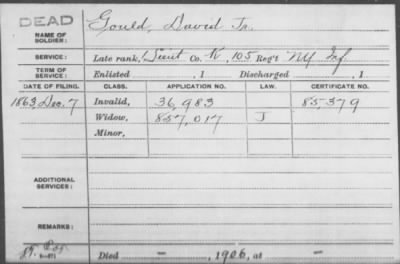 DEAD
NAME OF SOLDIER: Gould, David Jr.
SERVICE: Late rank, Lieut Co. K, 105 Reg't NY Inf.
TERM OF SERVICE: Enlisted , 1 Discharged , 1
DATE OF FILING. CLASS. APPLICATION NO. LAW. CERTIFICATE NO.
1863, Dec. 7 Invalid, 36,983 85,379
Widow, 857,017 J
Minor,
ADDITIONAL SERVICES:
REMARKS:
Died — , 1906, at —